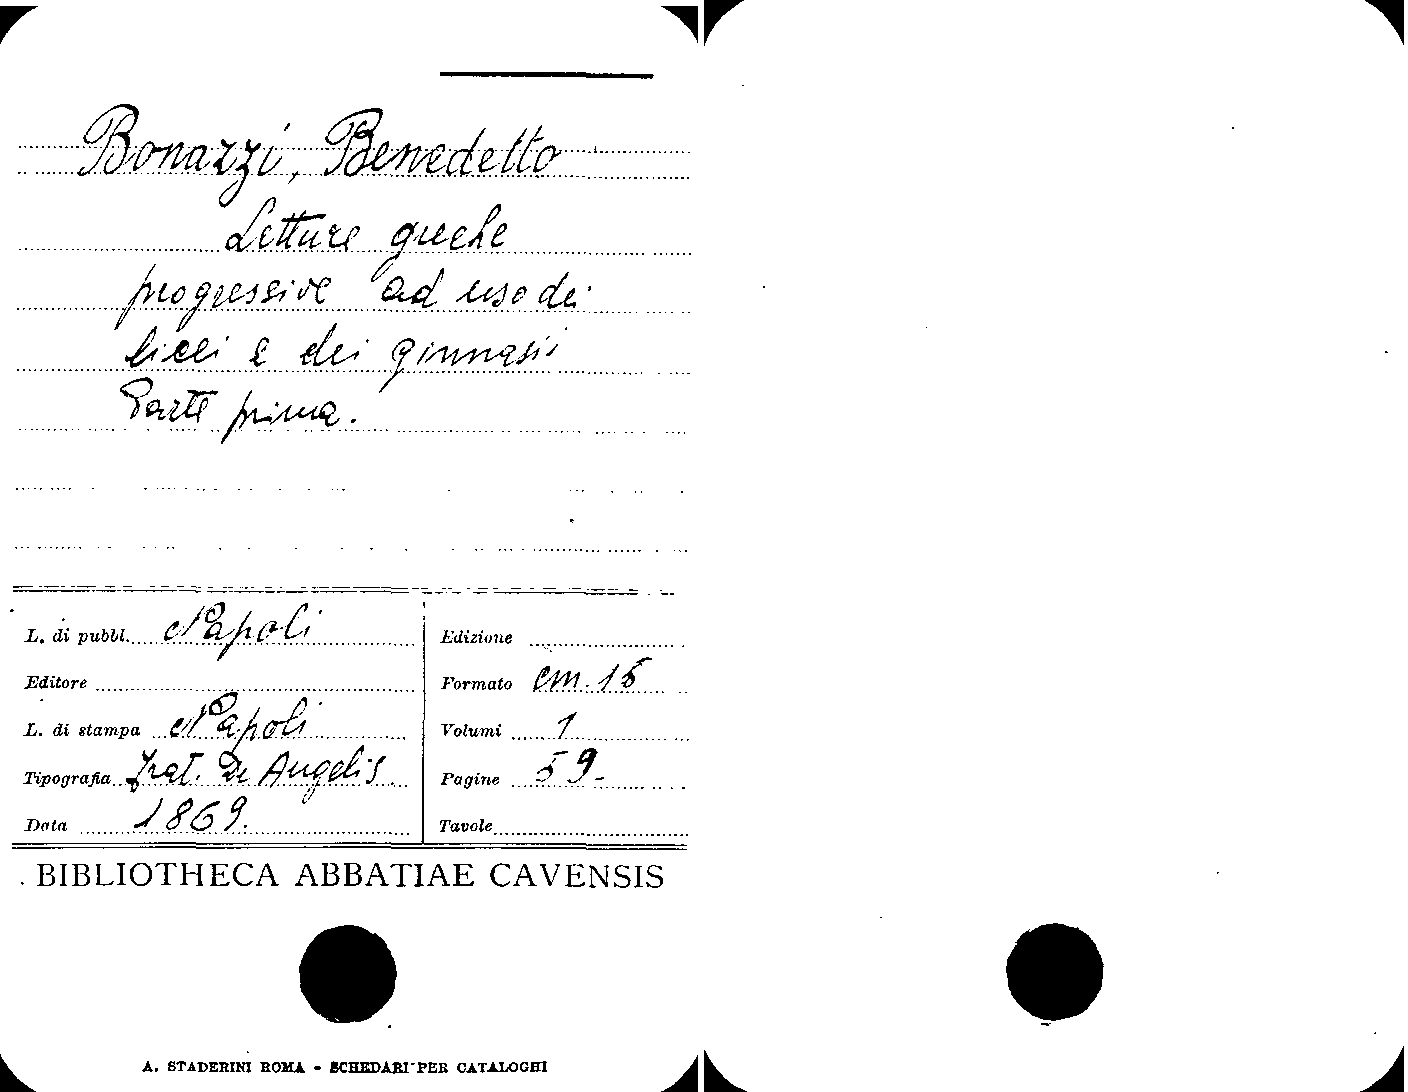 Bonazzi, Benedetto
Letture greche
progressive ad uso dei
licei e dei ginnasii
Parte prima.
L. di pubbl. Napoli
Editore
L. di stampa Napoli
Tipografia frat. De Angelis
Data 1869.
Edizione
Formato cm. 15
Volumi 1
Pagine 59.
Tavole
BIBLIOTHECA ABBATIAE CAVENSIS
A. STADERINI ROMA - SCHEDARI PER CATALOGHI